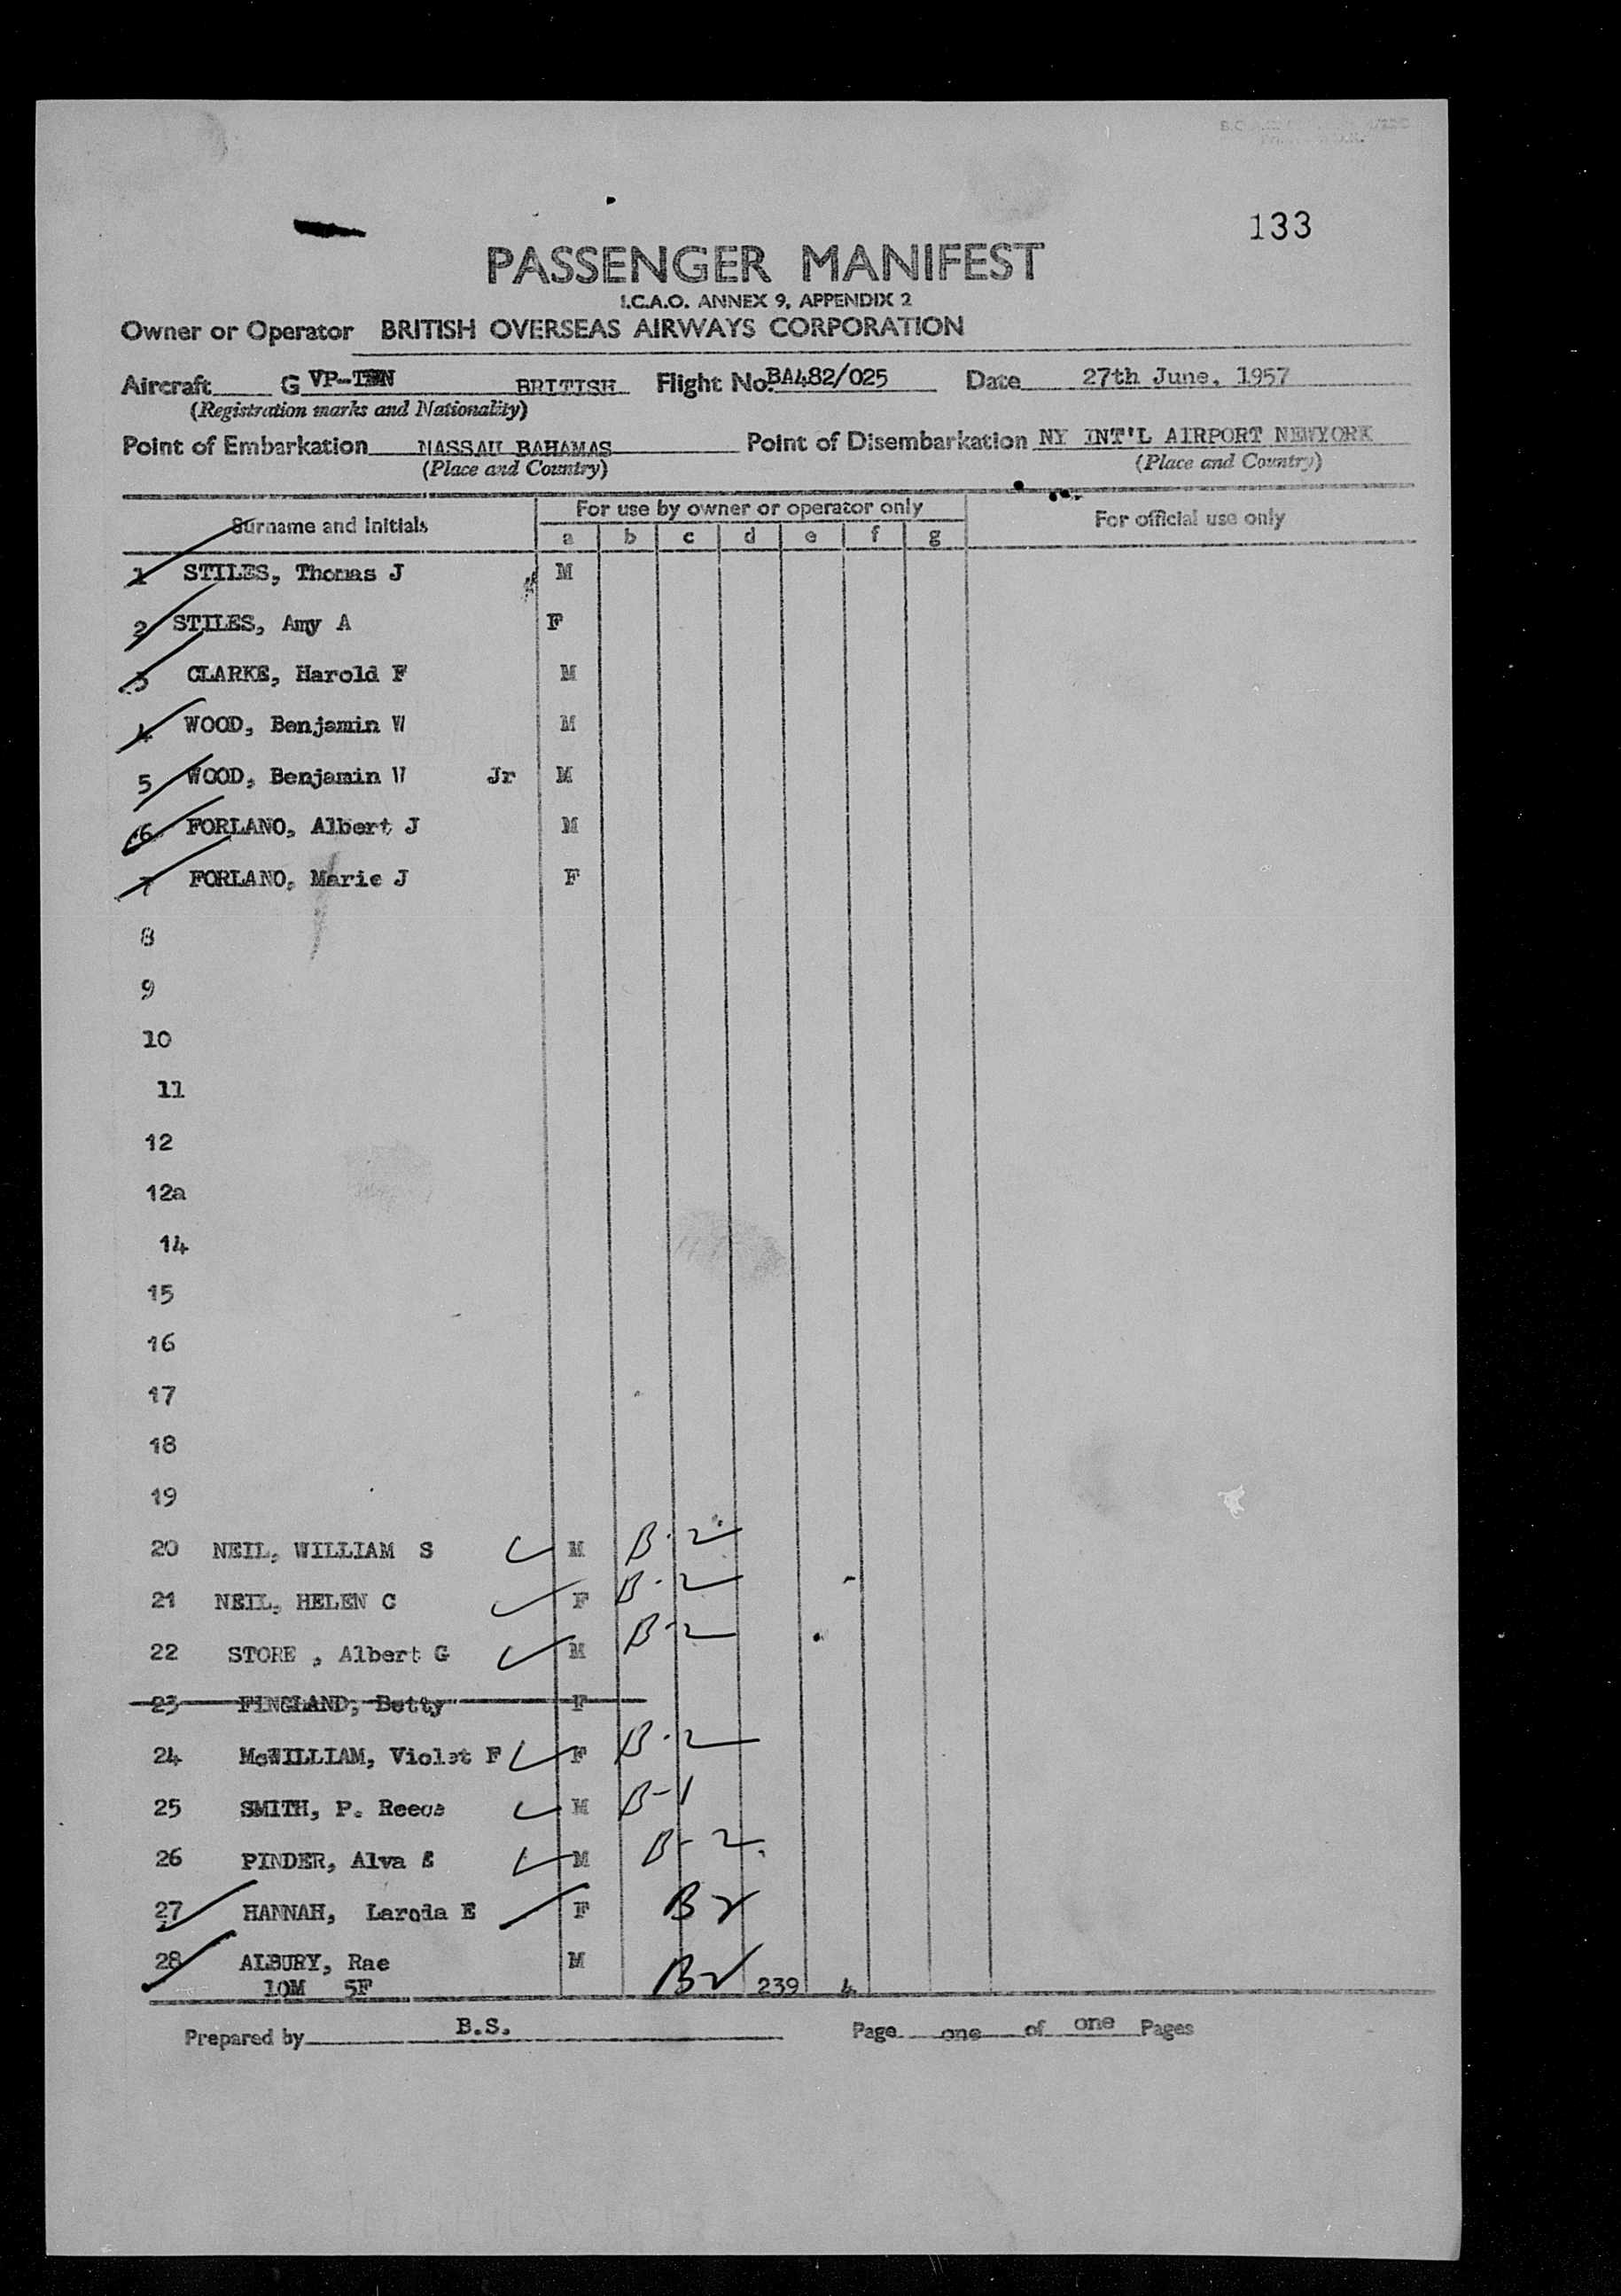 133
PASSENGER MANIFEST
I.C.A.O. ANNEX 9, APPENDIX 2
Owner or Operator BRITISH OVERSEAS AIRWAYS CORPORATION
Aircraft G VP- BRITISH Flight No. BA482/025 Date 27th June, 1957
(Registration marks and Nationality)
Point of Embarkation NASSAU BAHAMAS Point of Disembarkation NY INT'L AIRPORT NEWYORK
(Place and Country) (Place and Country)
Surname and Initials For use by owner or operator only For official use only
a b c d e f g
1 STILES, Thomas J M
2 STILES, Amy A F
3 CLARKE, Harold F M
4 WOOD, Benjamin W M
5 WOOD, Benjamin W Jr M
6 FORLANO, Albert J M
7 FORLANO, Marie J F
8
9
10
11
12
12a
14
15
16
17
18
19
20 NEIL, WILLIAM S M B-2
21 NEIL, HELEN C F B-2
22 STORE , Albert G M B-2
23 FINGLAND, Betty F
24 McWILLIAM, Violet F F B-2
25 SMITH, P. Reece M B-1
26 PINDER, Alva E M B-2
27 HANNAH, Laroda E F B2
28 ALBURY, Rae M B2
10M 5F 239 4
Prepared by B.S. Page one of one Pages